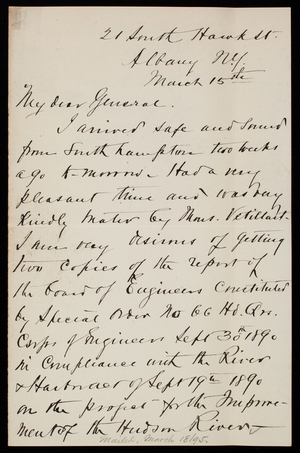 21 South Hawk St.
Albany N.Y.
March 15th
My dear General.
I arrived safe and sound
from Southhampton two weeks
ago to-morrow - Had a very
pleasant time and was
kindly by Mons. Vetillart.
I am very desirous of getting
two copies of the report of
the board of Engineers Constituted
by Special Order No 66 Hd. Qrs.
Corps of Engineers Sept 30th 1890
in Compliance with the River
& Harbor act of Sept 19th 1890
on the project for the Improve-
ment of the Hudson River &
March 1895.